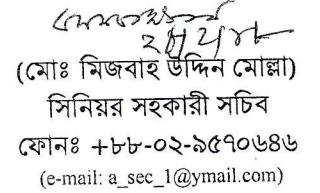 (মোঃ মিজবাহ উদ্দিন মোল্লা)
সিনিয়র সহকারী সচিব
ফোনঃ +৮৮-০২-৯৫৭০৬৪৬
(e-mail: a_sec_1@ymail.com)